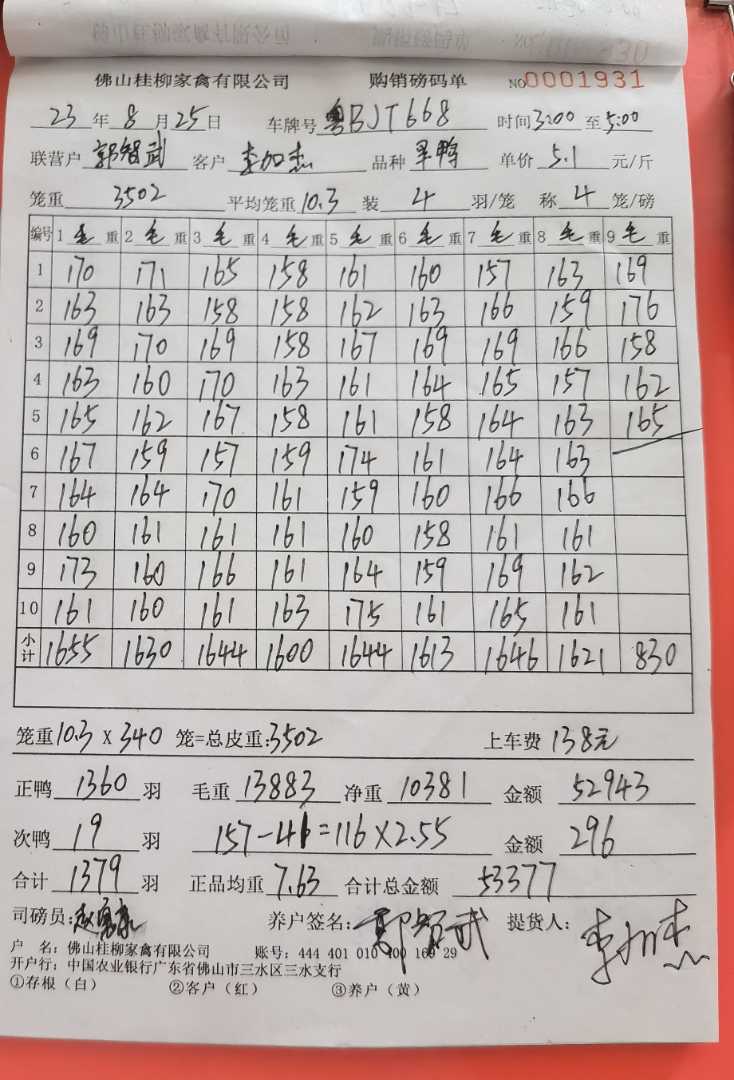 佛山桂柳家禽有限公司 购销磅码单 NO0001931
23年8月25日 车牌号粤BJT668 时间3:00至5:00
联营户郭智武 客户李加杰 品种半鸭 单价5.1元/斤
笼重3502 平均笼重10.3装4羽/笼 称4笼/磅
编号 1毛重 2毛重 3毛重 4毛重 5毛重 6毛重 7毛重 8毛重 9毛重
1 170 171 165 158 161 160 157 163 169
2 163 163 158 158 162 163 166 159 176
3 169 170 169 158 167 169 169 166 158
4 163 160 170 163 161 164 165 157 162
5 165 162 167 158 161 158 164 163 165
6 167 159 157 159 174 161 164 163
7 164 164 170 161 159 160 166 166
8 160 161 161 161 160 158 161 161
9 173 160 166 161 164 159 169 162
10 161 160 161 163 175 161 165 161
小计 1655 1630 1644 1600 1644 1613 1646 1621 830
笼重10.3X340笼=总皮重:3502 上车费138元
正鸭1360羽 毛重13883净重10381 金额52943
次鸭19羽 157-41=116×2.55 金额296
合计1379羽 正品均重7.63合计总金额53377
司磅员: 养户签名:郭智武 提货人:李加杰
户 名:佛山桂柳家禽有限公司 账号:444 401 010 400 169 29
开户行:中国农业银行广东省佛山市三水区三水支行
①存根(白) ②客户(红) ③养户(黄)